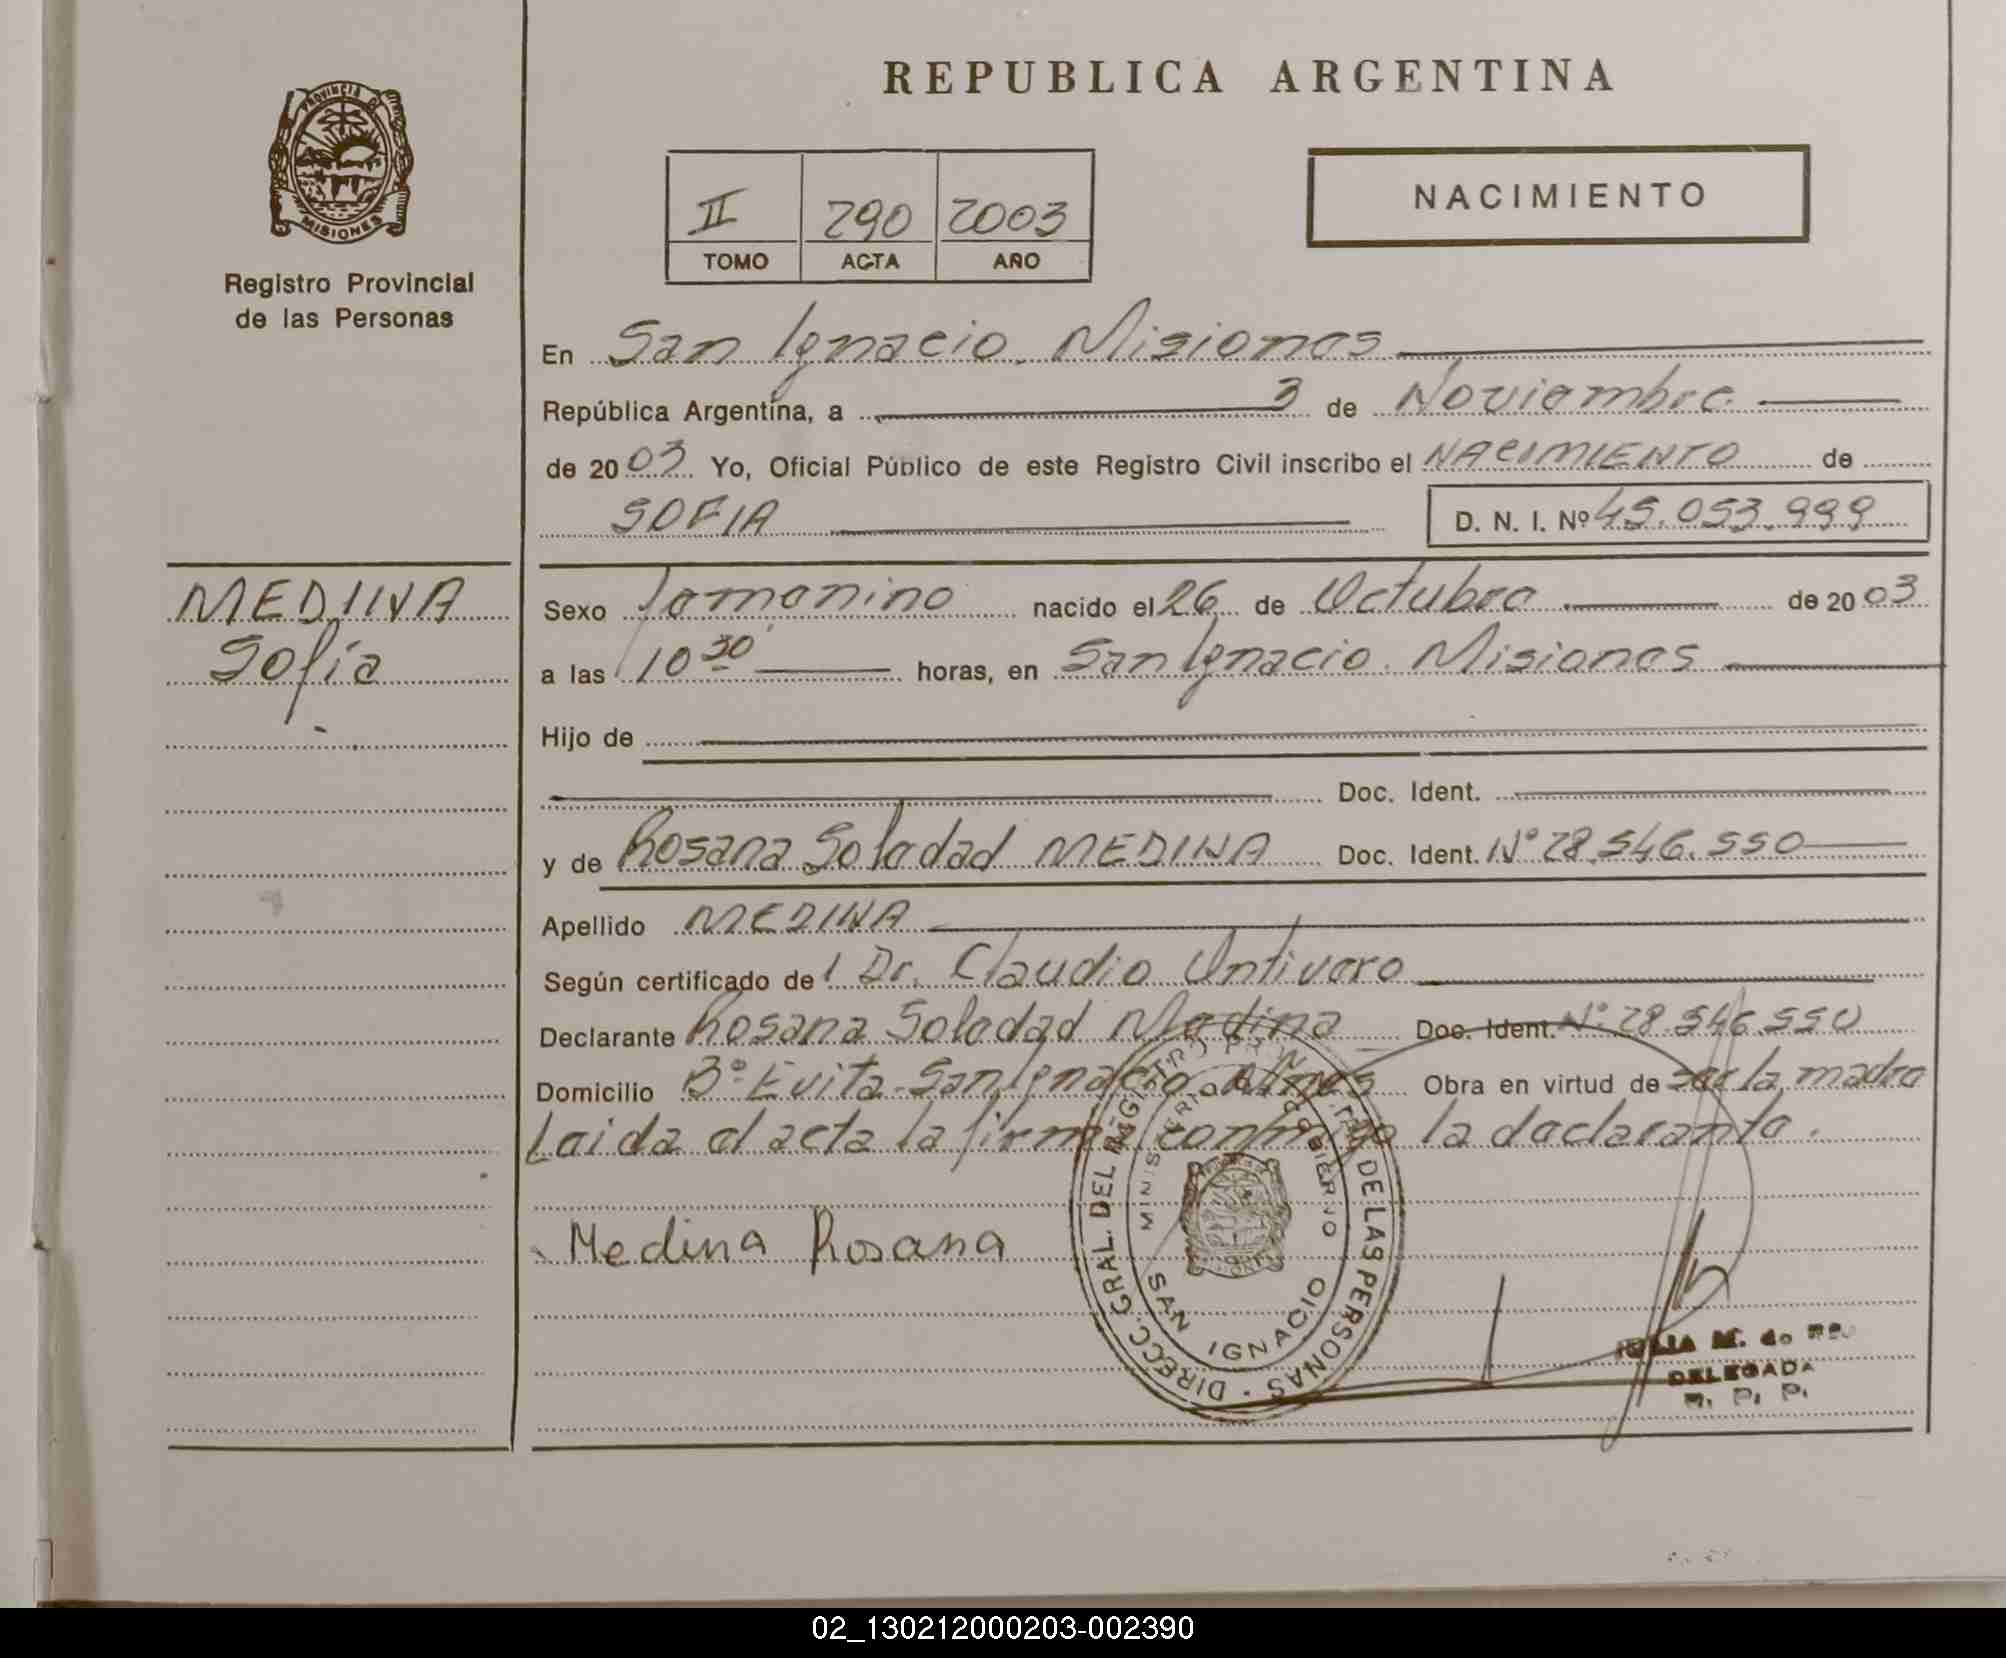 REPUBLICA ARGENTINA
PROVINCIA DE
MISIONES
Registro Provincial
de las Personas
II 290 2003
TOMO ACTA AÑO
NACIMIENTO
En San Ignacio. Misiones
República Argentina, a 3 de Noviembre
de 2003 Yo, Oficial Público de este Registro Civil inscribo el NACIMIENTO de
SOFIA D. N. I. Nº 45.053.999
MEDINA
Sofía
Sexo femenino nacido el 26 de Octubre de 2003
a las 10 30 horas, en San Ignacio. Misiones
Hijo de
Doc. Ident.
y de Rosana Soledad MEDINA Doc. Ident. Nº 28.546.550
Apellido MEDINA
Según certificado de l Dr. Claudio Ontivero
Declarante Rosana Soledad Medina Doc. Ident. Nº 28.546.550
Domicilio Bº Evita-San Ignacio. Mnes Obra en virtud de ser la madre
Leida el acta la firma conmigo la declarante.
Medina Rosana
DIRECC. GRAL. DEL REGISTRO PROVINCIAL DE LAS PERSONAS
MINISTERIO DE GOBIERNO
SAN IGNACIO
M. de
DELEGADA
R. P. P.
02_130212000203-002390